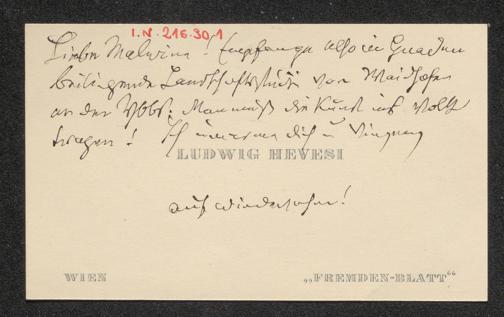 I.N. 216.301
Liebe Malwina! Empfange also in Gnaden
beiliegende Landschaftsstudie von Waidhofen
an der Ybbs. Man muß die Kunst ins Volk
tragen! Ich umarme dich u.
LUDWIG HEVESI
auf Wiedersehen!
WIEN „FREMDEN-BLATT“